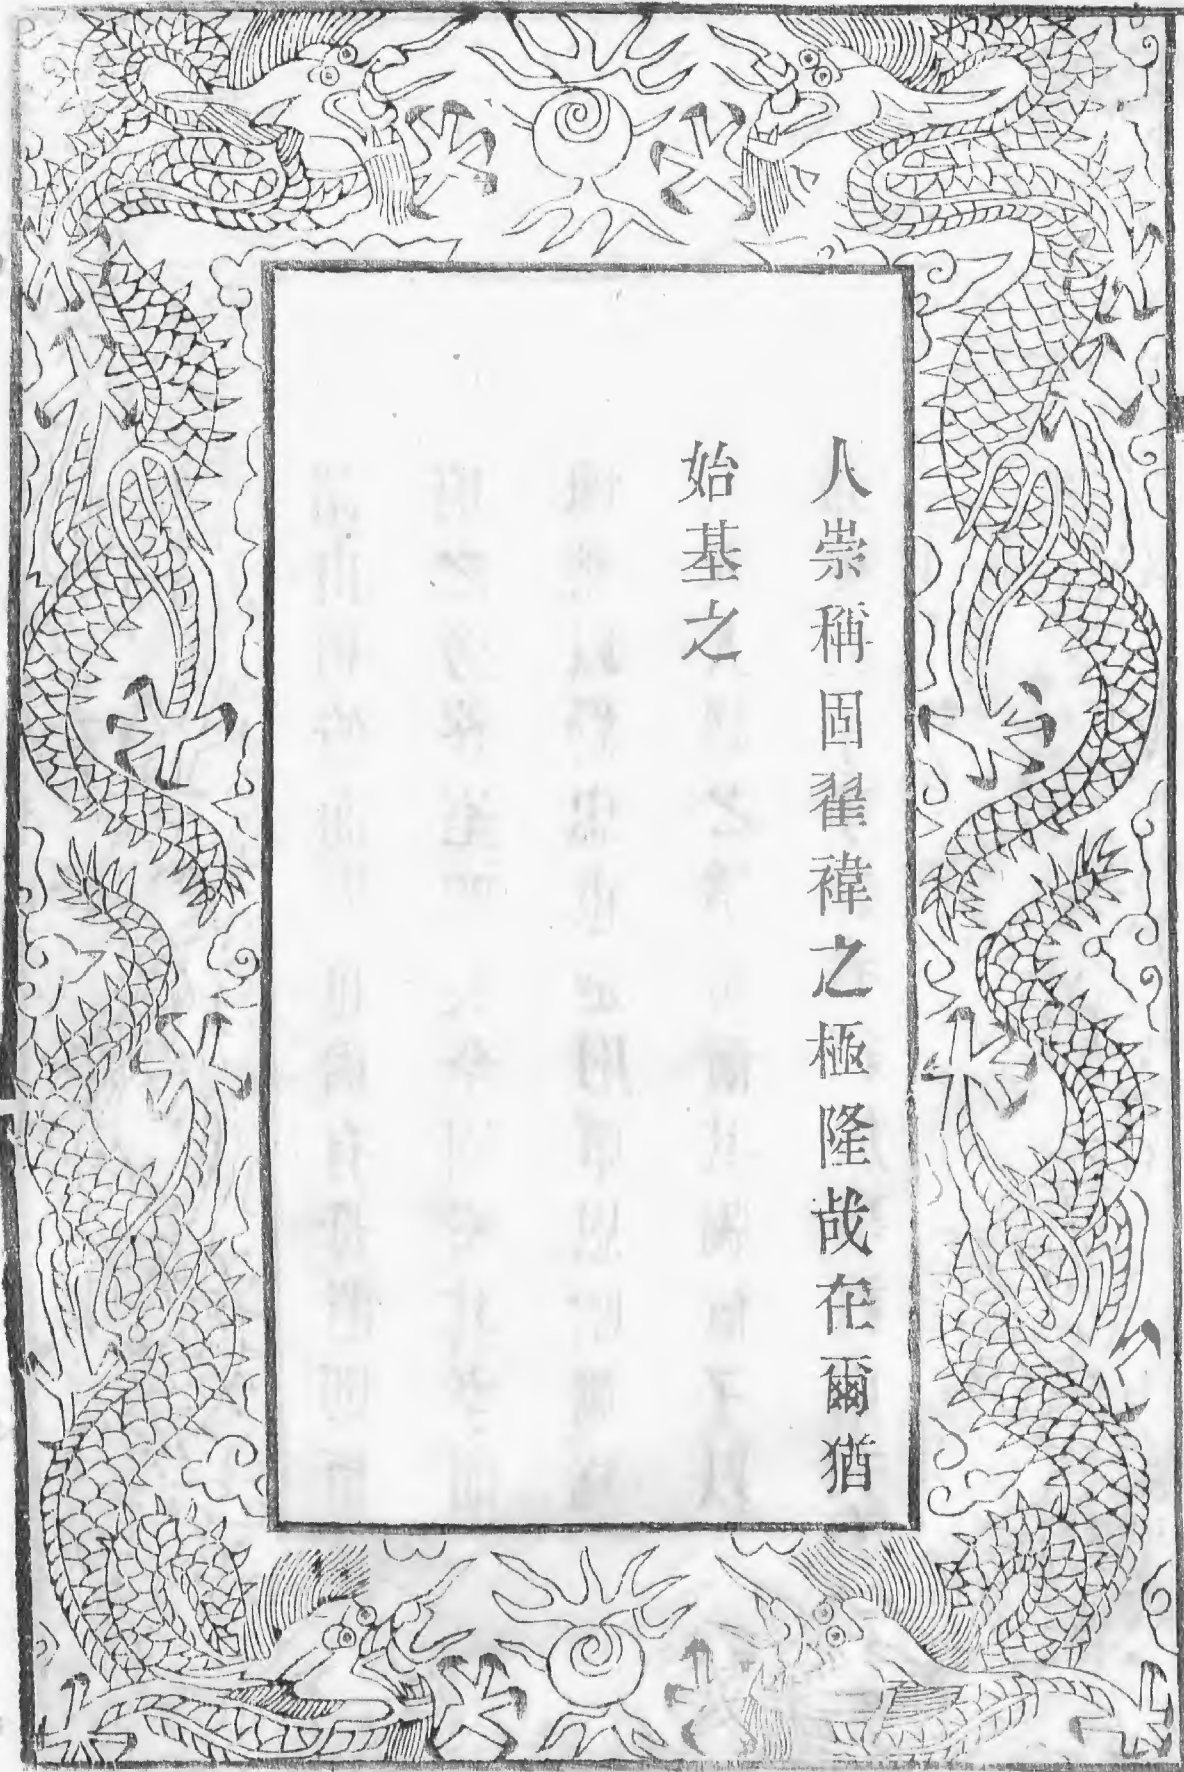 人崇稱固翟褘之極隆哉在爾猶
始基之